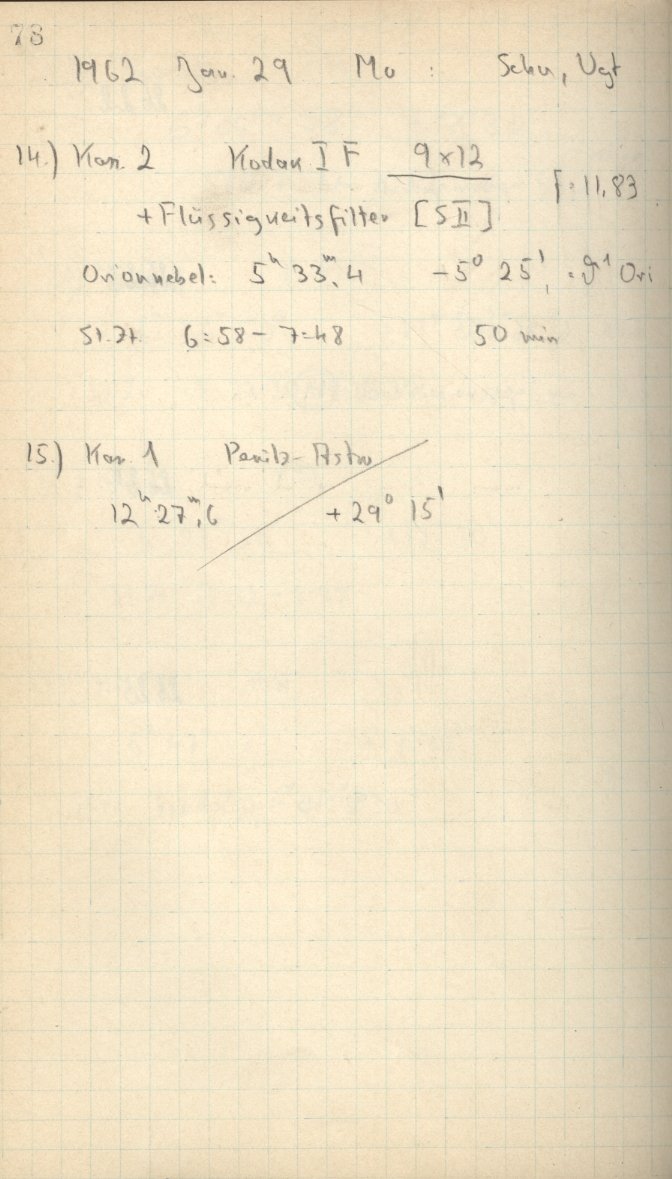 78
1962 Jan. 29 Mo : Schu, Vgt
14.) Kam. 2 Kodak I F 9x12 f: 11,83
+ Flüssigkeitsfilter [S II]
Orionnebel: 5ʰ 33ᵐ,4 -5° 25', = ϑ¹ Ori
St.Zt. 6:58 - 7:48 50 min
15.) Kam. 1 Perutz-Astro
12ʰ 27ᵐ,6 + 29° 15'